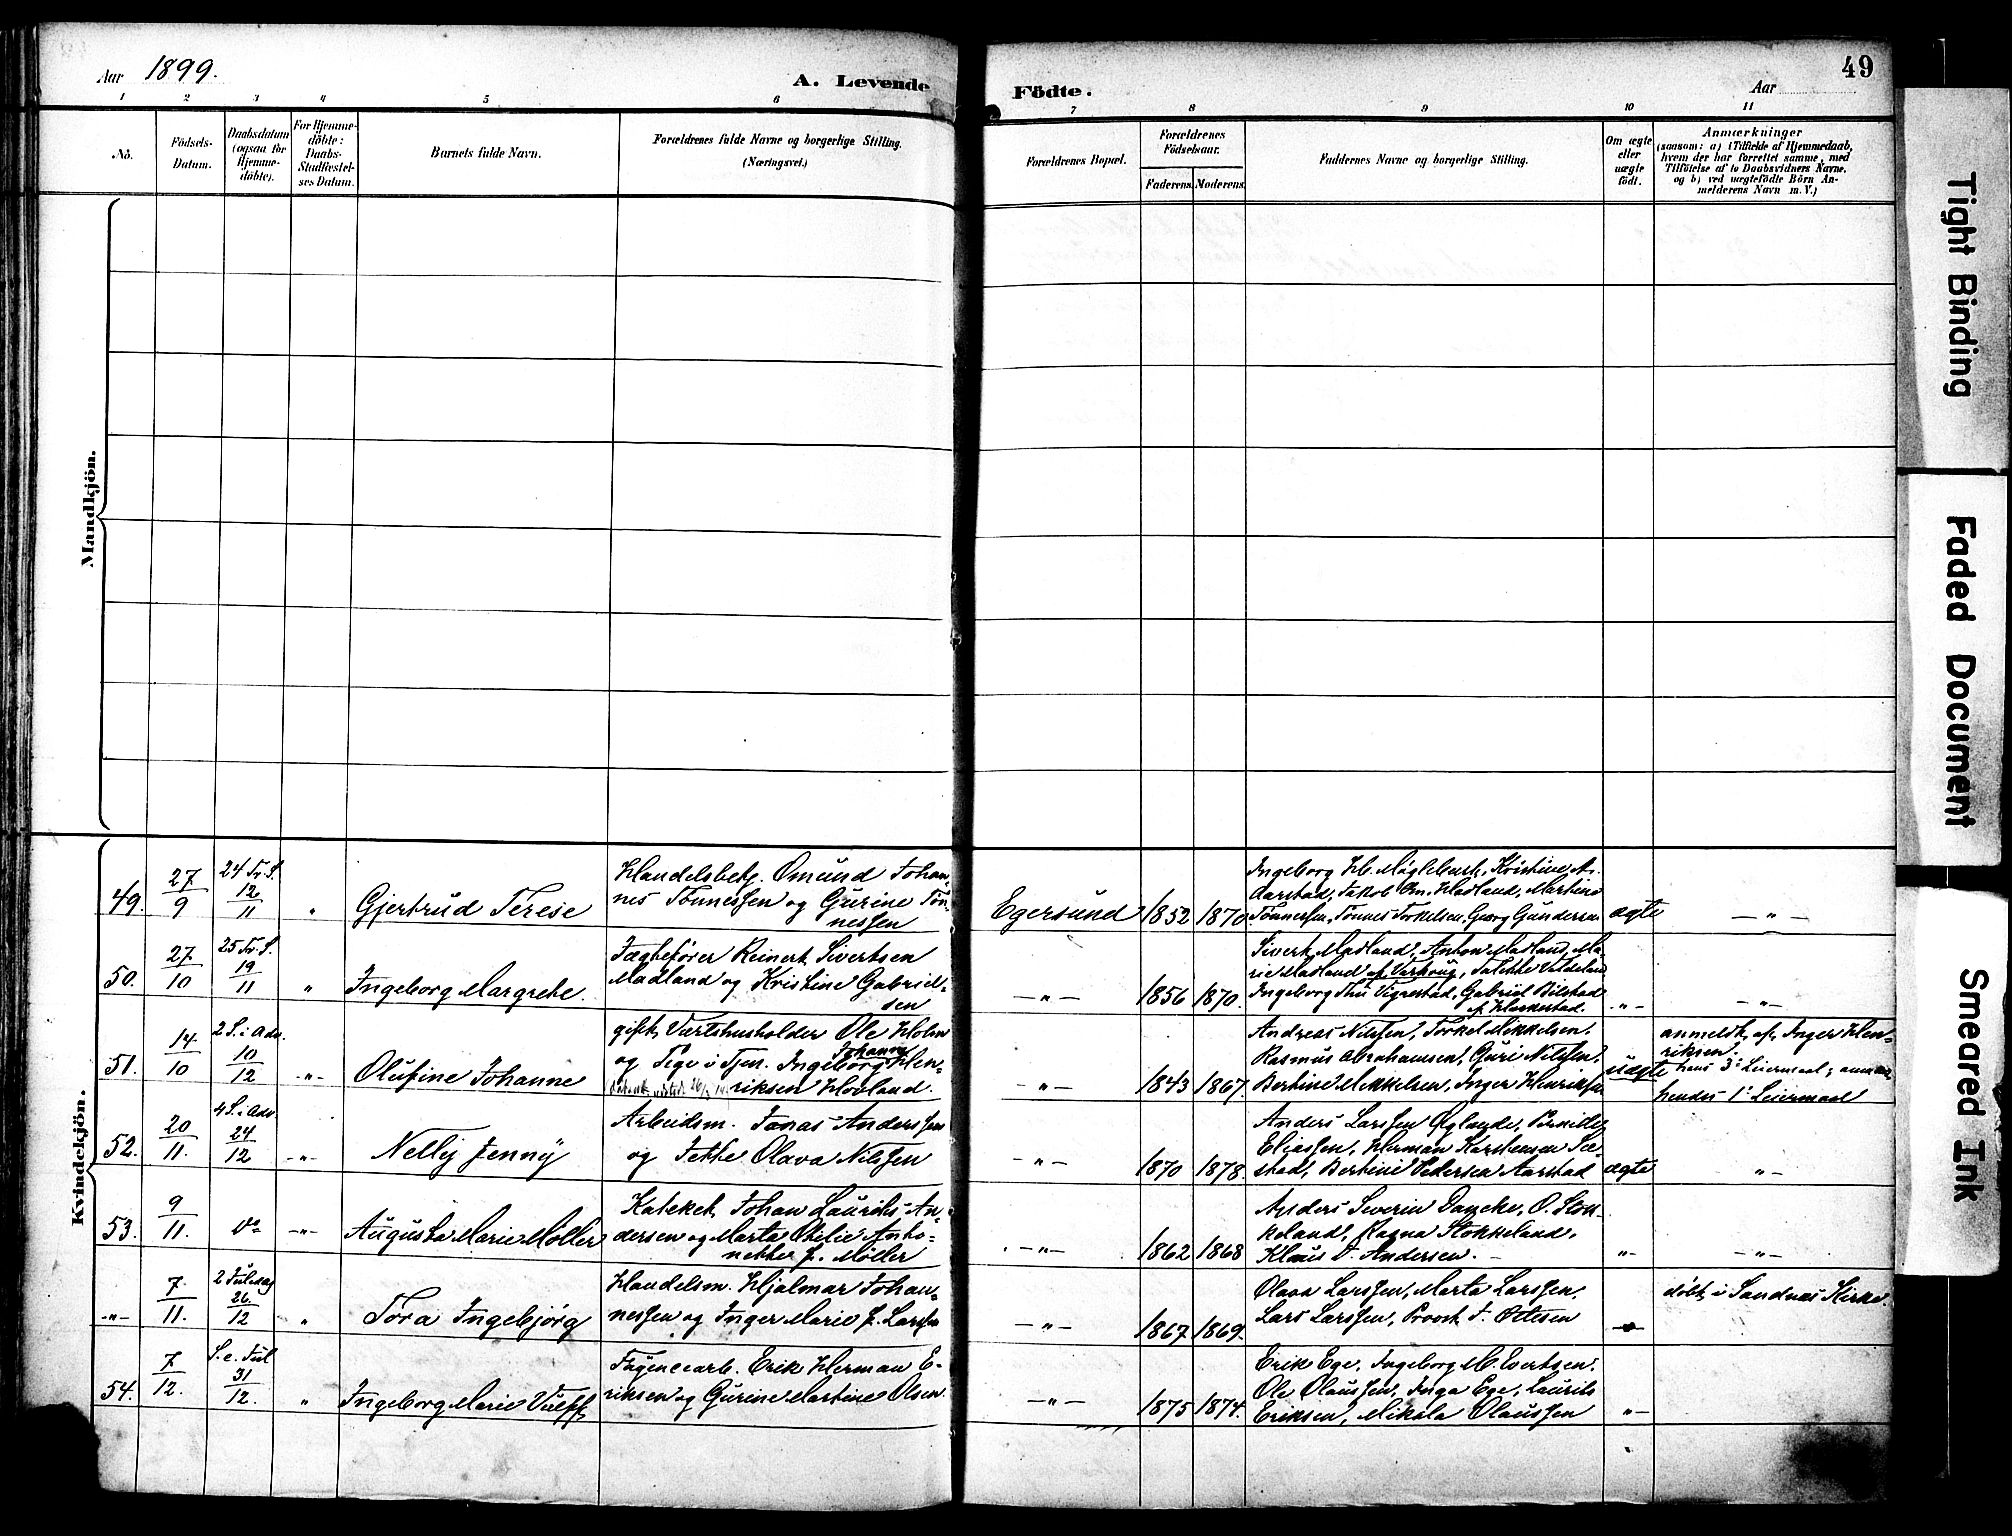 Aar 1899.
A. Levende
Födte.
Aar
49
1 2 3 4 5 6
7 8 9 10 11
No.
Födsels-
Datum.
Daabsdatum
(ogsaa for
Hjemme-
döbte).
For Hjemme-
döbte:
Daabs-
Stadfæstel-
ses Datum.
Barnets fulde Navn.
Forældrenes fulde Navne og borgerlige Stilling.
(Næringsvei.)
Forældrenes Bopæl.
Forældrenes
Födselsaar.
Faderens. Moderens.
Faddernes Navne og borgerlige Stilling.
Om ægte
eller
uægte
födt.
Anmærkninger
(saasom: a) i Tilfælde af Hjemmedaab,
hvem der har forrettet samme, med
Tilföielse af to Daabsvidners Navne,
og b) ved uægtefödte Börn An-
melderens Navn m. V.)
Mandkjön.
Kvindekjön.
49.
27/9
24 Tr. S.
12/11
"
Gjertrud Terese
Handelsbetj. Omund Johan-
nes Tønnessen og Gurine Tøn-
nessen
Egersund
1852 1870
Ingeborg Kristine
Aarstad, Jakob Hadland, Martine
Tønnessen, Tønnes Torkelsen, Georg Gundersen
ægte
— " —
50.
27/10
25 Tr. S.
19/11
"
Ingeborg Margrethe.
Reinert Sivertsen
Madland og Kristine Gabriel-
sen
— " —
1856 1870.
Sivert Madland, Anton Madland, Ma-
rie Madland af Varhoug,
Ingeborg Vigrestad, Gabriel Bilstad
" —
— " —
51.
14/10
2 S. i Adv.
10/12
— " —
Olufine Johanne
gift Værtshusholder Ole Holm
og Pige i Tjen. Ingeborg Johanne Hen-
riksen Hovland.
— " —
1843 1867.
Andreas Nilssen, Torkel Mikkelsen,
Rasmus Abrahamsen, Guri Nilssen,
Bertine Mikkelsen, Inger Henriksen
uægte
anmeldt af Inger Hen-
riksen.
hans 3' Leiermaal;
hendes 1' Leiermaal
52.
20/11.
4 S. i Adv.
24/12
— " —
Nelly Jenny
Arbeidsm. Jonas Anderssen
og Jette Olava Nilssen
— " —
1870 1878.
Anders Larssen Øglænde, Pernille
Eliassen, Herman Karstensen Sæ-
stad, Bertine Pedersen Aarstad
ægte
" —
53.
9/11.
do
— " —
Augusta Marie Møller
Kateket Johan Laurits An-
dersen og Marta Otilie Anto-
nette f. Møller
— " —
1862 1868
Anders Severin Dancke, O. Stok-
keland, Ragna Stokkeland,
Klaus Andersen.
" —
— " —
— " —
7/11.
2 Juledag
26/12
"
Tora Ingebjørg
Handelsm. Hjalmar Johan-
nessen og Inger Marie f. Larssen
— " —
1867 1869.
Olava Larssen, Marta Larssen,
Lars Larssen, Provst Ottesen
— " —
döbt i Sandnes Kirke.
54.
7/12.
S. e. Jul
31/12.
"
Ingeborg Marie Wulff
Fayencearb. Erik Herman E-
riksen og Gurine Martine Olsen
— " —
1875 1874.
Erik Ege, Ingeborg M. Evertsen,
Ole Olaussen, Inga Ege, Laurits
Eriksen, Mikala Olaussen
" —
Tight Binding
Faded Document
Smeared Ink